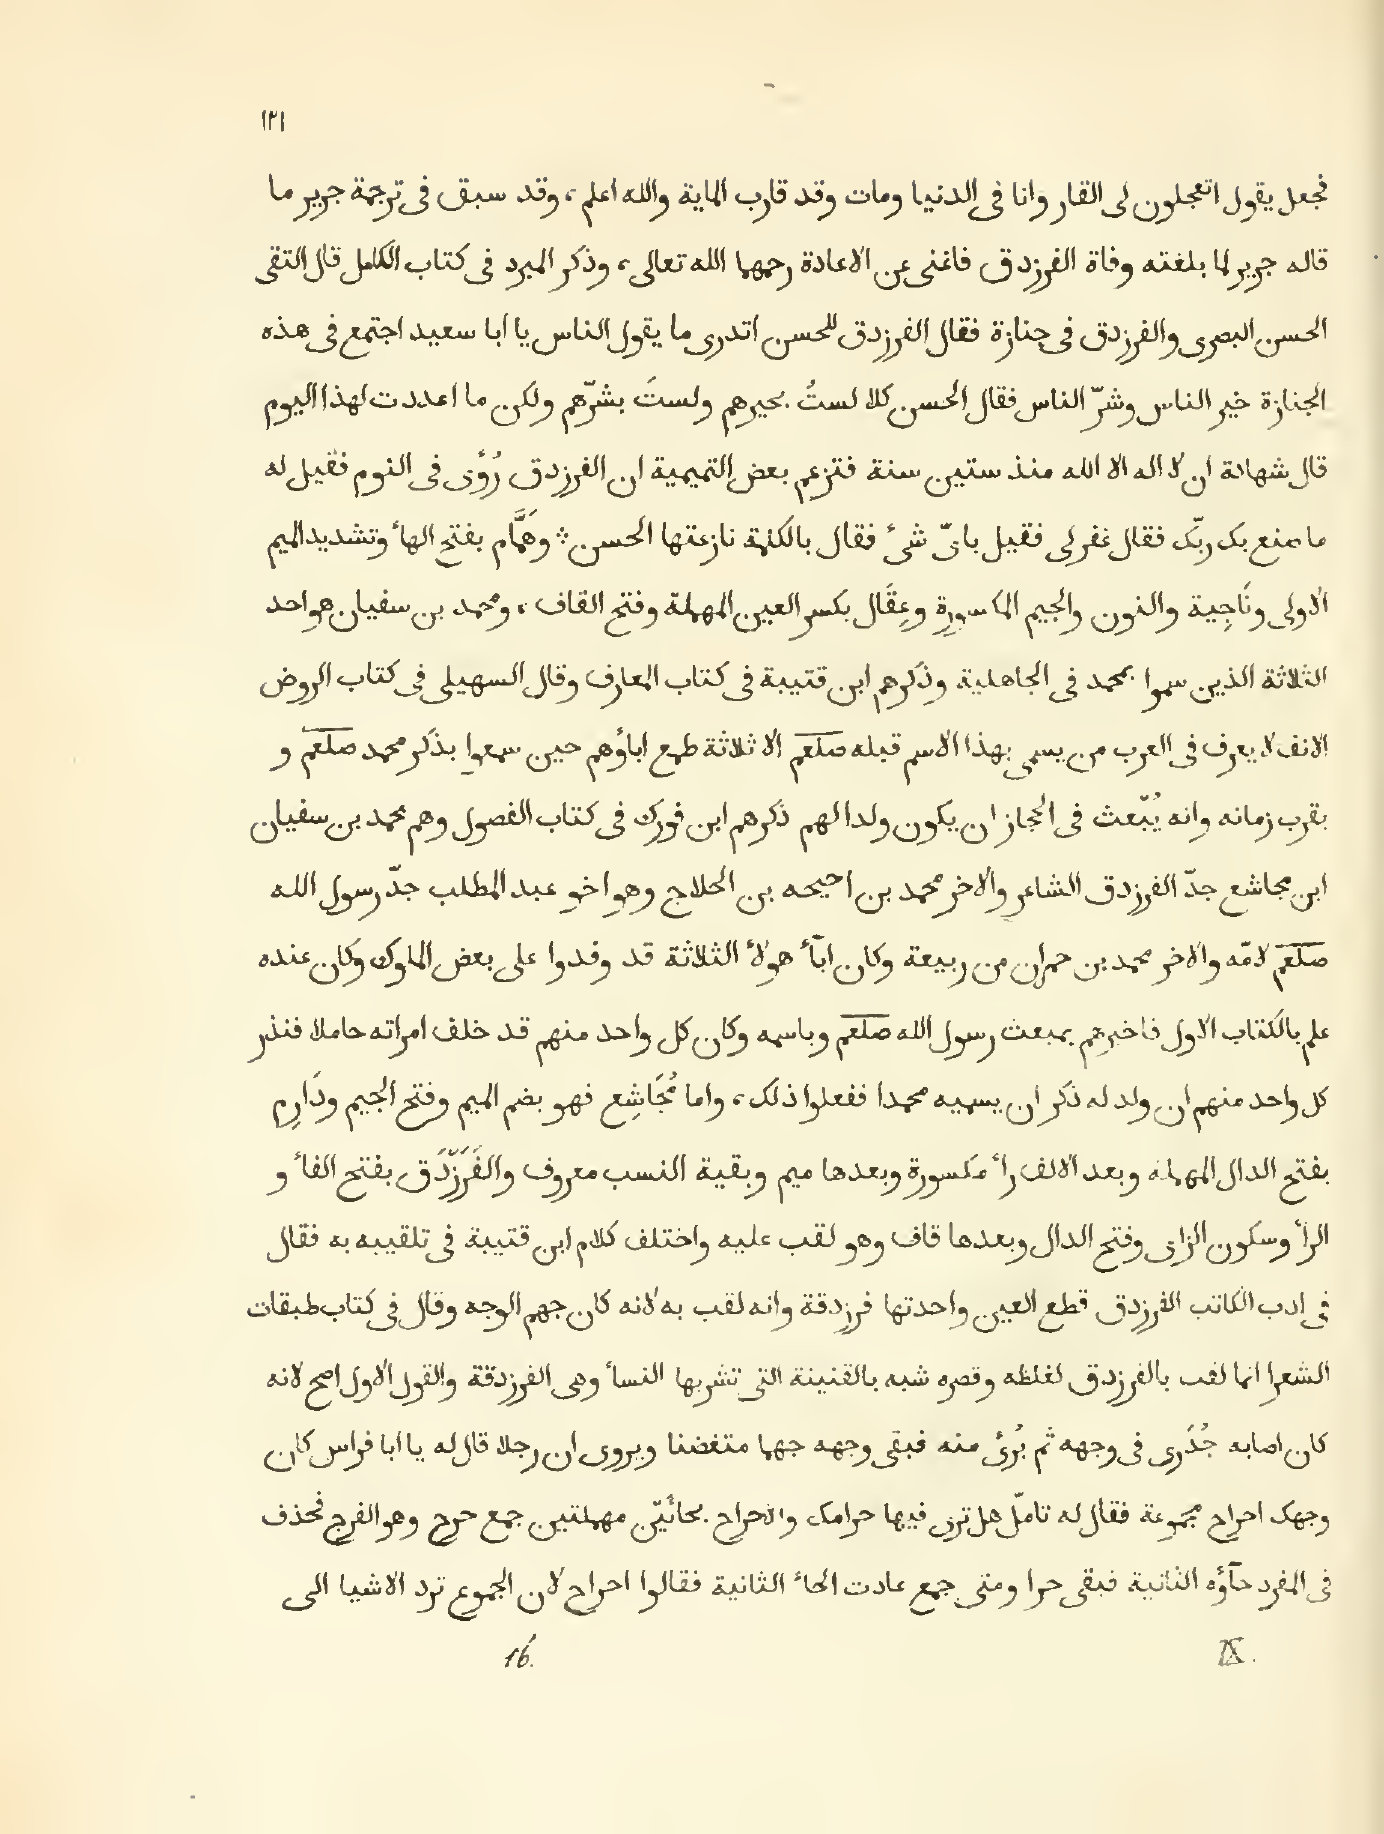 ١٢١
فجعل يقول اتعجلون لى القار وانا فى الدنيا ومات وقد قارب الماية والله اعلم، وقد سبق فى ترجمة جرير ما
قاله جرير لما بلغته وفاة الفرزدق فاغنى عن الاعادة رحمهما الله تعالى، وذكر المبرد فى كتاب الكامل قال التقى
الحسن البصرى والفرزدق فى جنازة فقال الفرزدق للحسن اتدرى ما يقول الناس يا ابا سعيد اجتمع فى هذه
الجنازة خير الناس وشرّ الناس فقال الحسن كلا لستُ بخيرهم ولستَ بشرّهم ولكن ما اعددت لهذا اليوم
قال شهادة ان لا اله الا الله منذ ستين سنة فتزعم بعض التميمية ان الفرزدق رُؤى فى النوم فقيل له
ما صنع بك ربّك فقال غفر لى فقيل باىّ شىٔ فقال بالكلمة نازعتها الحسن ؞ وهَمَّام بفتح الهأ وتشديد الميم
الاولى ونَاجِية والنون والجيم المكسورة وعِقَال بكسر العين المهملة وفتح القاف، ومحمد بن سفيان هو احد
الثلاثة الذين سموا بمحمد فى الجاهلية وذكرهم ابن قتيبة فى كتاب المعارف وقال السهيلى فى كتاب الروض
الانف لا يعرف فى العرب من يسمى بهذا الاسم قبله صلعم الا ثلاثة طمع اباؤهم حين سمعوا بذكر محمد صلعم و
بقرب زمانه وانه يُبّعث فى الحجاز ان يكون ولدا لهم ذكرهم ابن فورك فى كتاب الفصول وهم محمد بن سفيان
ابن مجاشع جدّ الفرزدق الشاعر والاخر محمد بن احيحه بن الحلاج وهو اخو عبد المطلب جدّ رسول الله
صلعم لامّه والاخر محمد بن حمران من ربيعة وكان ابآٔ هولأ الثلاثة قد وفدوا على بعض الملوك وكان عنده
علم بالكتاب الاول فاخبرهم بمبعث رسول الله صلعم وباسمه وكان كل واحد منهم قد خلف امراته حاملا فنذر
كل واحد منهم ان ولد له ذكر ان يسميه محمدا ففعلوا ذلك، واما مُجَاشِع فهو بضم الميم وفتح الجيم ودَارِم
بفتح الدال المهملة وبعد الالف رأ مكسورة وبعدها ميم وبقية النسب معروف والفَرَزّدَق بفتح الفأ و
الرأ وسكون الزاى وفتح الدال وبعدها قاف وهو لقب عليه واختلف كلام ابن قتيبة فى تلقيبه به فقال
فى ادب الكاتب الفرزدق قطع العين واحدتها فرزدقة وانه لقب به لانه كان جهم الوجه وقال فى كتاب طبقات
الشعرا انما لقب بالفرزدق لغلظه وقصره شبه بالقنينة التى تشربها النسأ وهى الفرزدقة والقول الاول اصح لانه
كان اصابه جُدَرى فى وجهه ثم بُرىٔ منه فبقى وجهه جهما متغضنا ويروى ان رجلا قال له يا ابا فراس كان
وجهك احراح مجموعة فقال له تامّل هل ترى فيها حرامك والاحراح بحائيّن مهملتين جمع حرح وهو الفرج فحذف
فى المفرد حآؤه الثانية فبقى حرا ومتى جمع عادت الحأ الثانية فقالوا احراح لان الجموع ترد الاشيا الى
IX. 16.